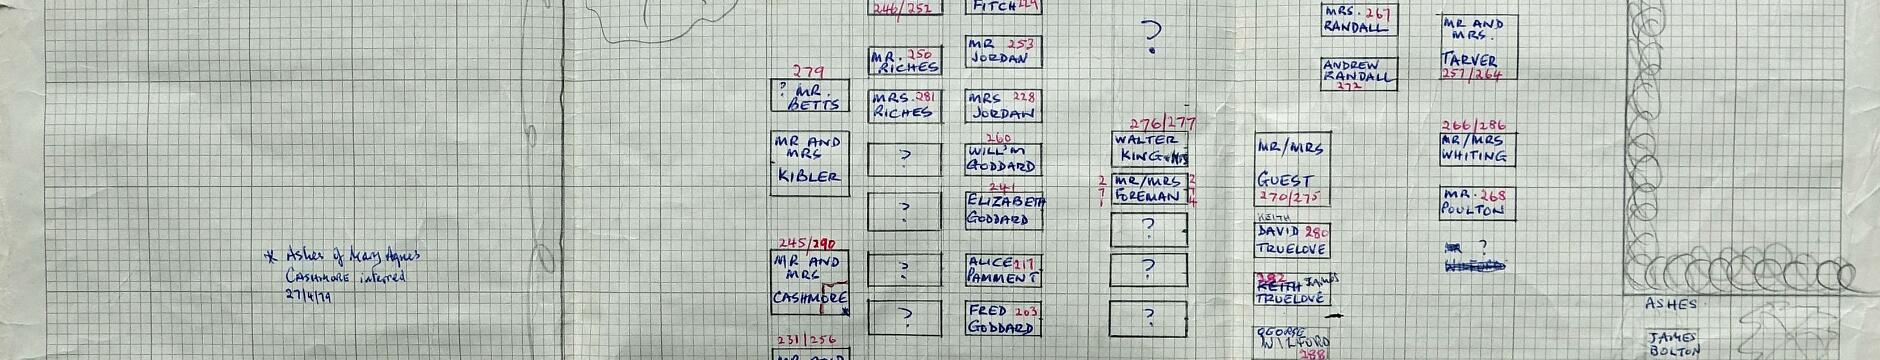 246/252
FITCH 229
?
MRS. 267
RANDALL
MR AND
MRS.
TARVER
257/264
MR. 250
RICHES
MR 253
JORDAN
ANDREW
RANDALL
272
279
? MR.
BETTS
MRS. 281
RICHES
MRS 228
JORDAN
MR AND
MRS
KIBLER
?
260
WILL'M
GODDARD
276/277
WALTER
KING
MR/MRS
GUEST
270/275
266/286
MR/MRS
WHITING
?
241
ELIZABETH
GODDARD
271
MR/MRS
FOREMAN
274
MR. 268
POULTON
?
KEITH
DAVID 280
TRUELOVE
?
* Ashes of Mary Agnes
CASHMORE interred
27/4/79
245/290
MR AND
MRS
CASHMORE
*
?
ALICE 217
PAMMENT
?
282
KEITH JAMES
TRUELOVE
?
FRED 203
GODDARD
?
GEORGE
WILFORD
288
ASHES
JAMES
BOLTON
231/256